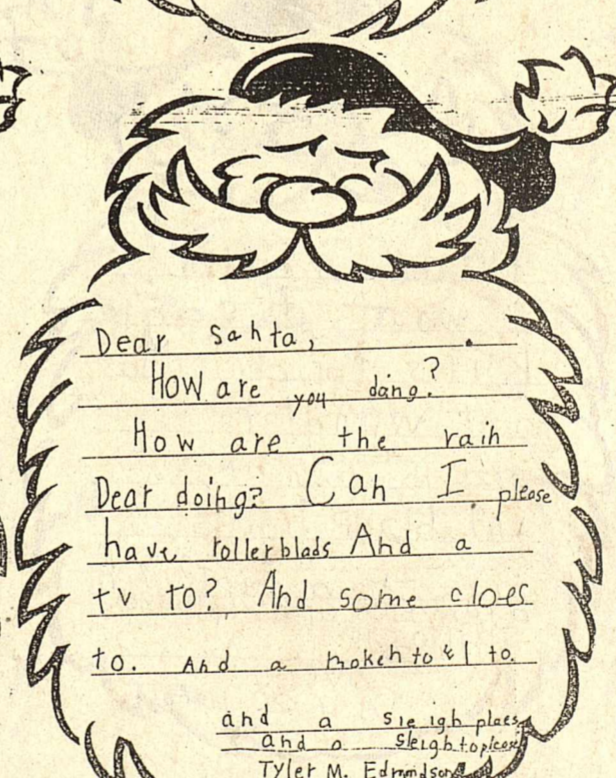 Dear Sahta,
How are you doing?
How are the raih
Dear doihg? Cah I please
have rollerblads And a
tv to? And some cloes
to. And a to.
and a Sleigh plaes
and a Sleigh to please
Tyler M. Edmndson